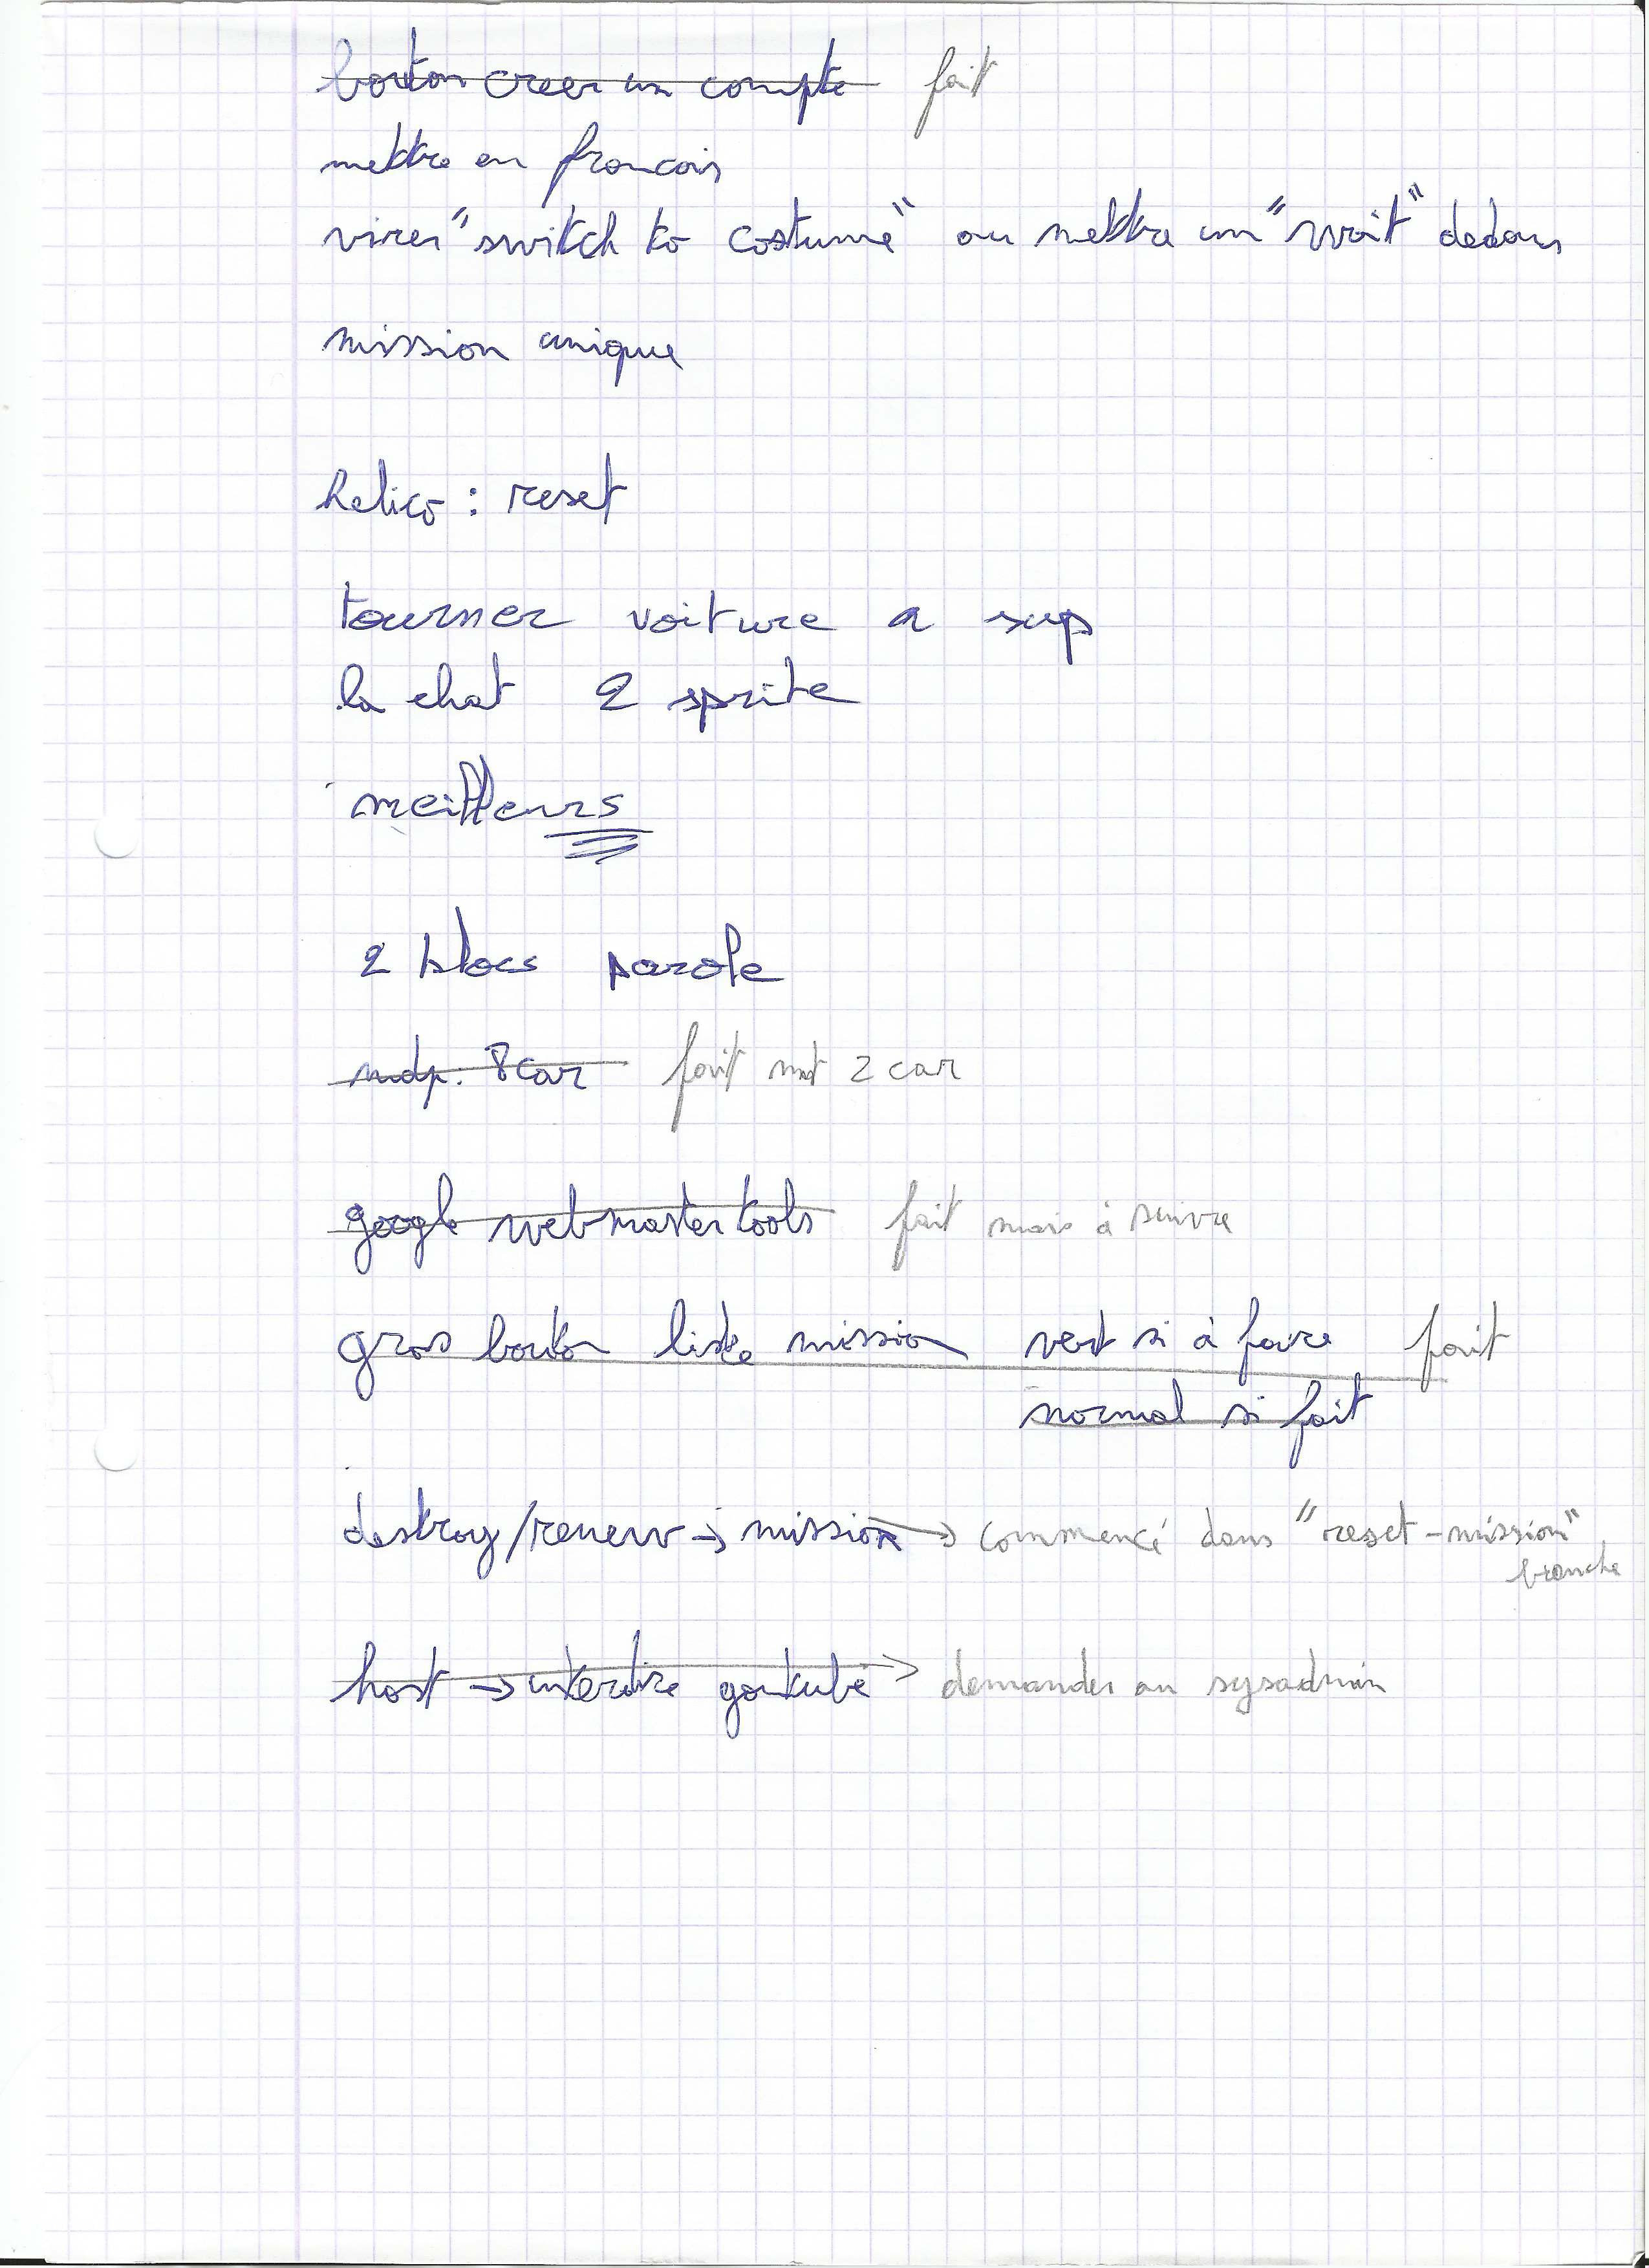 bouton creer un compte fait
mettre en francais
virer "switch to costume" ou mettre un "wait" dedans
mission unique
helico : reset
tourner voiture a sup
la chat 2 sprite
meilleurs
2 blocs parole
mdp. 8 car fait 2 car
google webmaster tools fait mais à suivre
gros bouton liste mission vert si à faire fait
normal si fait
destroy/renew → mission → commencé dans "reset-mission"
branche
host → interdire → demander au sysadmin